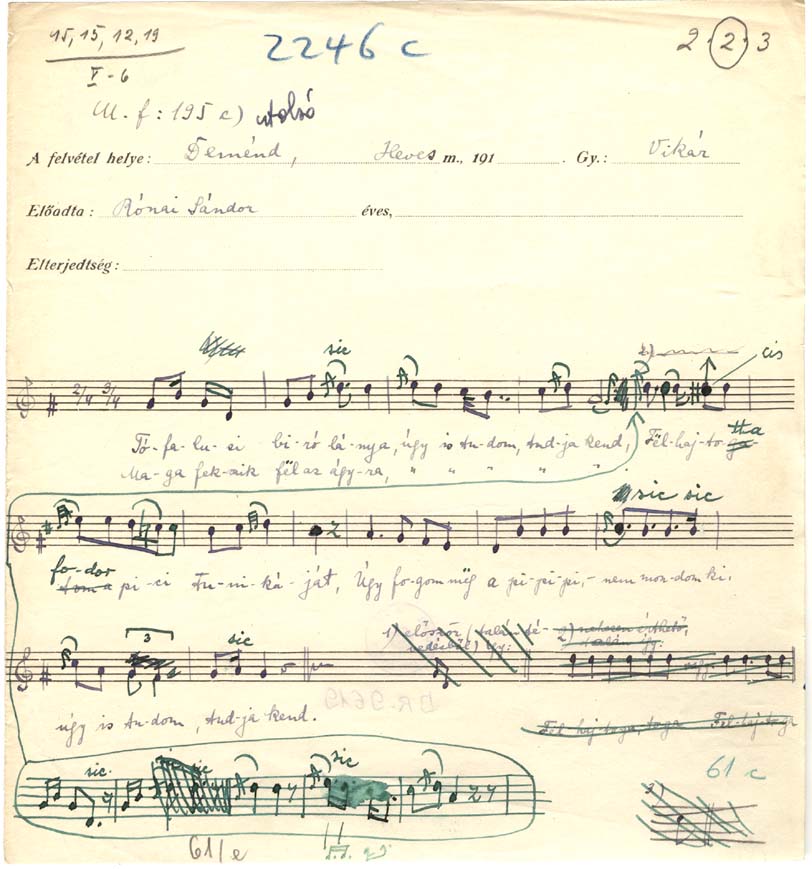 15, 15, 12, 19
V - 6
2246 c
2 · 2 · 3
M. f: 195 c) utolsó
A felvétel helye: Deménd, Heves m., 191 . Gy.: Vikár
Előadta: Rónai Sándor éves,
Elterjedtség:
sic 2) cis
2/4 3/4
Tó-fa-lu-si bi-ró lá-nya, úgy is tu-dom, tud-ja kend, Fel-haj-to-tta
Ma-ga fek-szik fel az ágy-ra, " " " " "
sic sic
fo-dor
pi-ci tu-ni-ká-ját, Úgy fo-gom még a pi-pi-pi,- nem mon-dom ki,
3 sic 1) először (talán té-
vedésből) így: 2) nehezen érthető,
talán így:
vagy
úgy is tu-dom, tud-ja kend.
Fel-haj-toga, toga Fel-haj-toga
BR. 9619
61 c
sic. sic sic
61/e